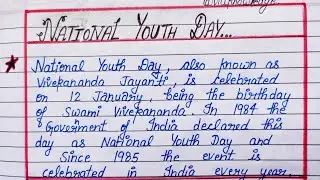 NATIONAL YOUTH DAY...
National Youth Day, also known as
Vivekananda Jayanti, is celebrated
on 12 January, being the birthday
of Swami Vivekananda. In 1984 the
Government of India declared this
day as National Youth Day and
Since 1985 the event is
celebrated in India every year...